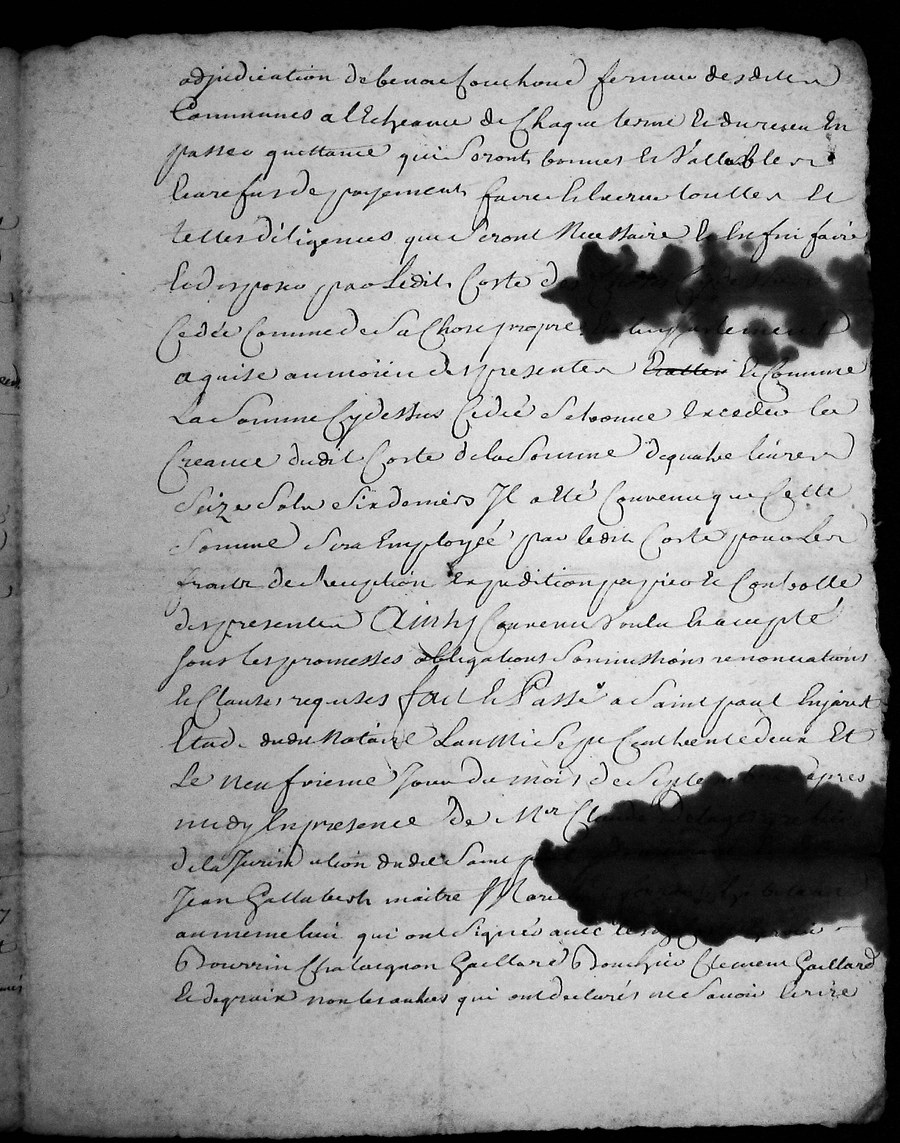 adjudication de benoit fermier desdites
Communes a l'Echeance de Chaque terme Et du receu En
passer quittance qui seront bonnes Et Vallables
Et a refus de payement faire Et Exercer touttes Et
telles diligences que seront Necessaire Et Enfin faire
Et disposer par Ledit Coste de
Cedée Comme de Sa Chose propre
aquise au moïen des presentes Et Comme
La Somme Cydessus Cedée Se trouve Exceder la
Creance dudit Coste de la Somme de quatre livres
Seize Sols Six deniers Il a été Convenu que Cette
Somme Sera Employée par ledit Coste pour Les
fraits de Reception Expedition papier Et Controlle
des presentes Ainsy Convenu Voulu Et accepté
sous les promesses obligations Soumissions renonciations
Et Clauses requises fait Et Passé a Saint paul En jarest
Etude dudit Notaire L'an Mil Sept Cent trente deux Et
Le neufvieme Jour du mois de Septembre apres
midy En presence de Mr Claude
de la Jurisdiction dudit Saint paul
Jean maitre
au meme lieu qui ont Signés avec
Bourrin Chataignon Gaillard Bouchier Clement Gaillard
Et degraix non les autres qui ont declarés ne Savoir Ecrire